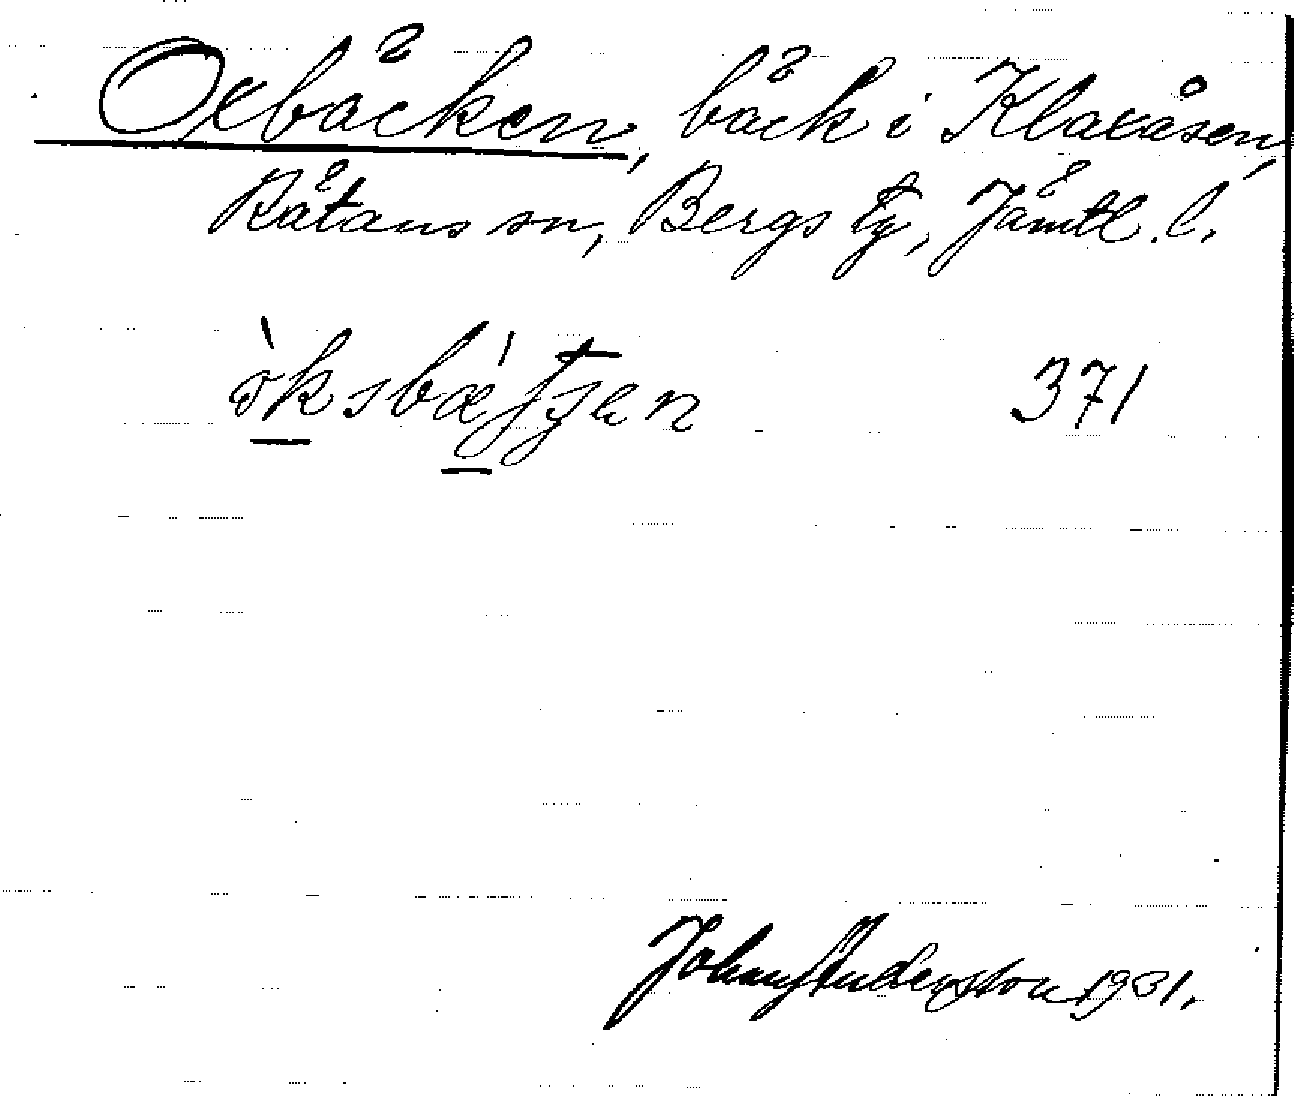 Oxbäcken, bäck i Klaxåsen,
Rätans sn, Bergs tg, Jämtl. l.
371
Johan Anderson 1931.